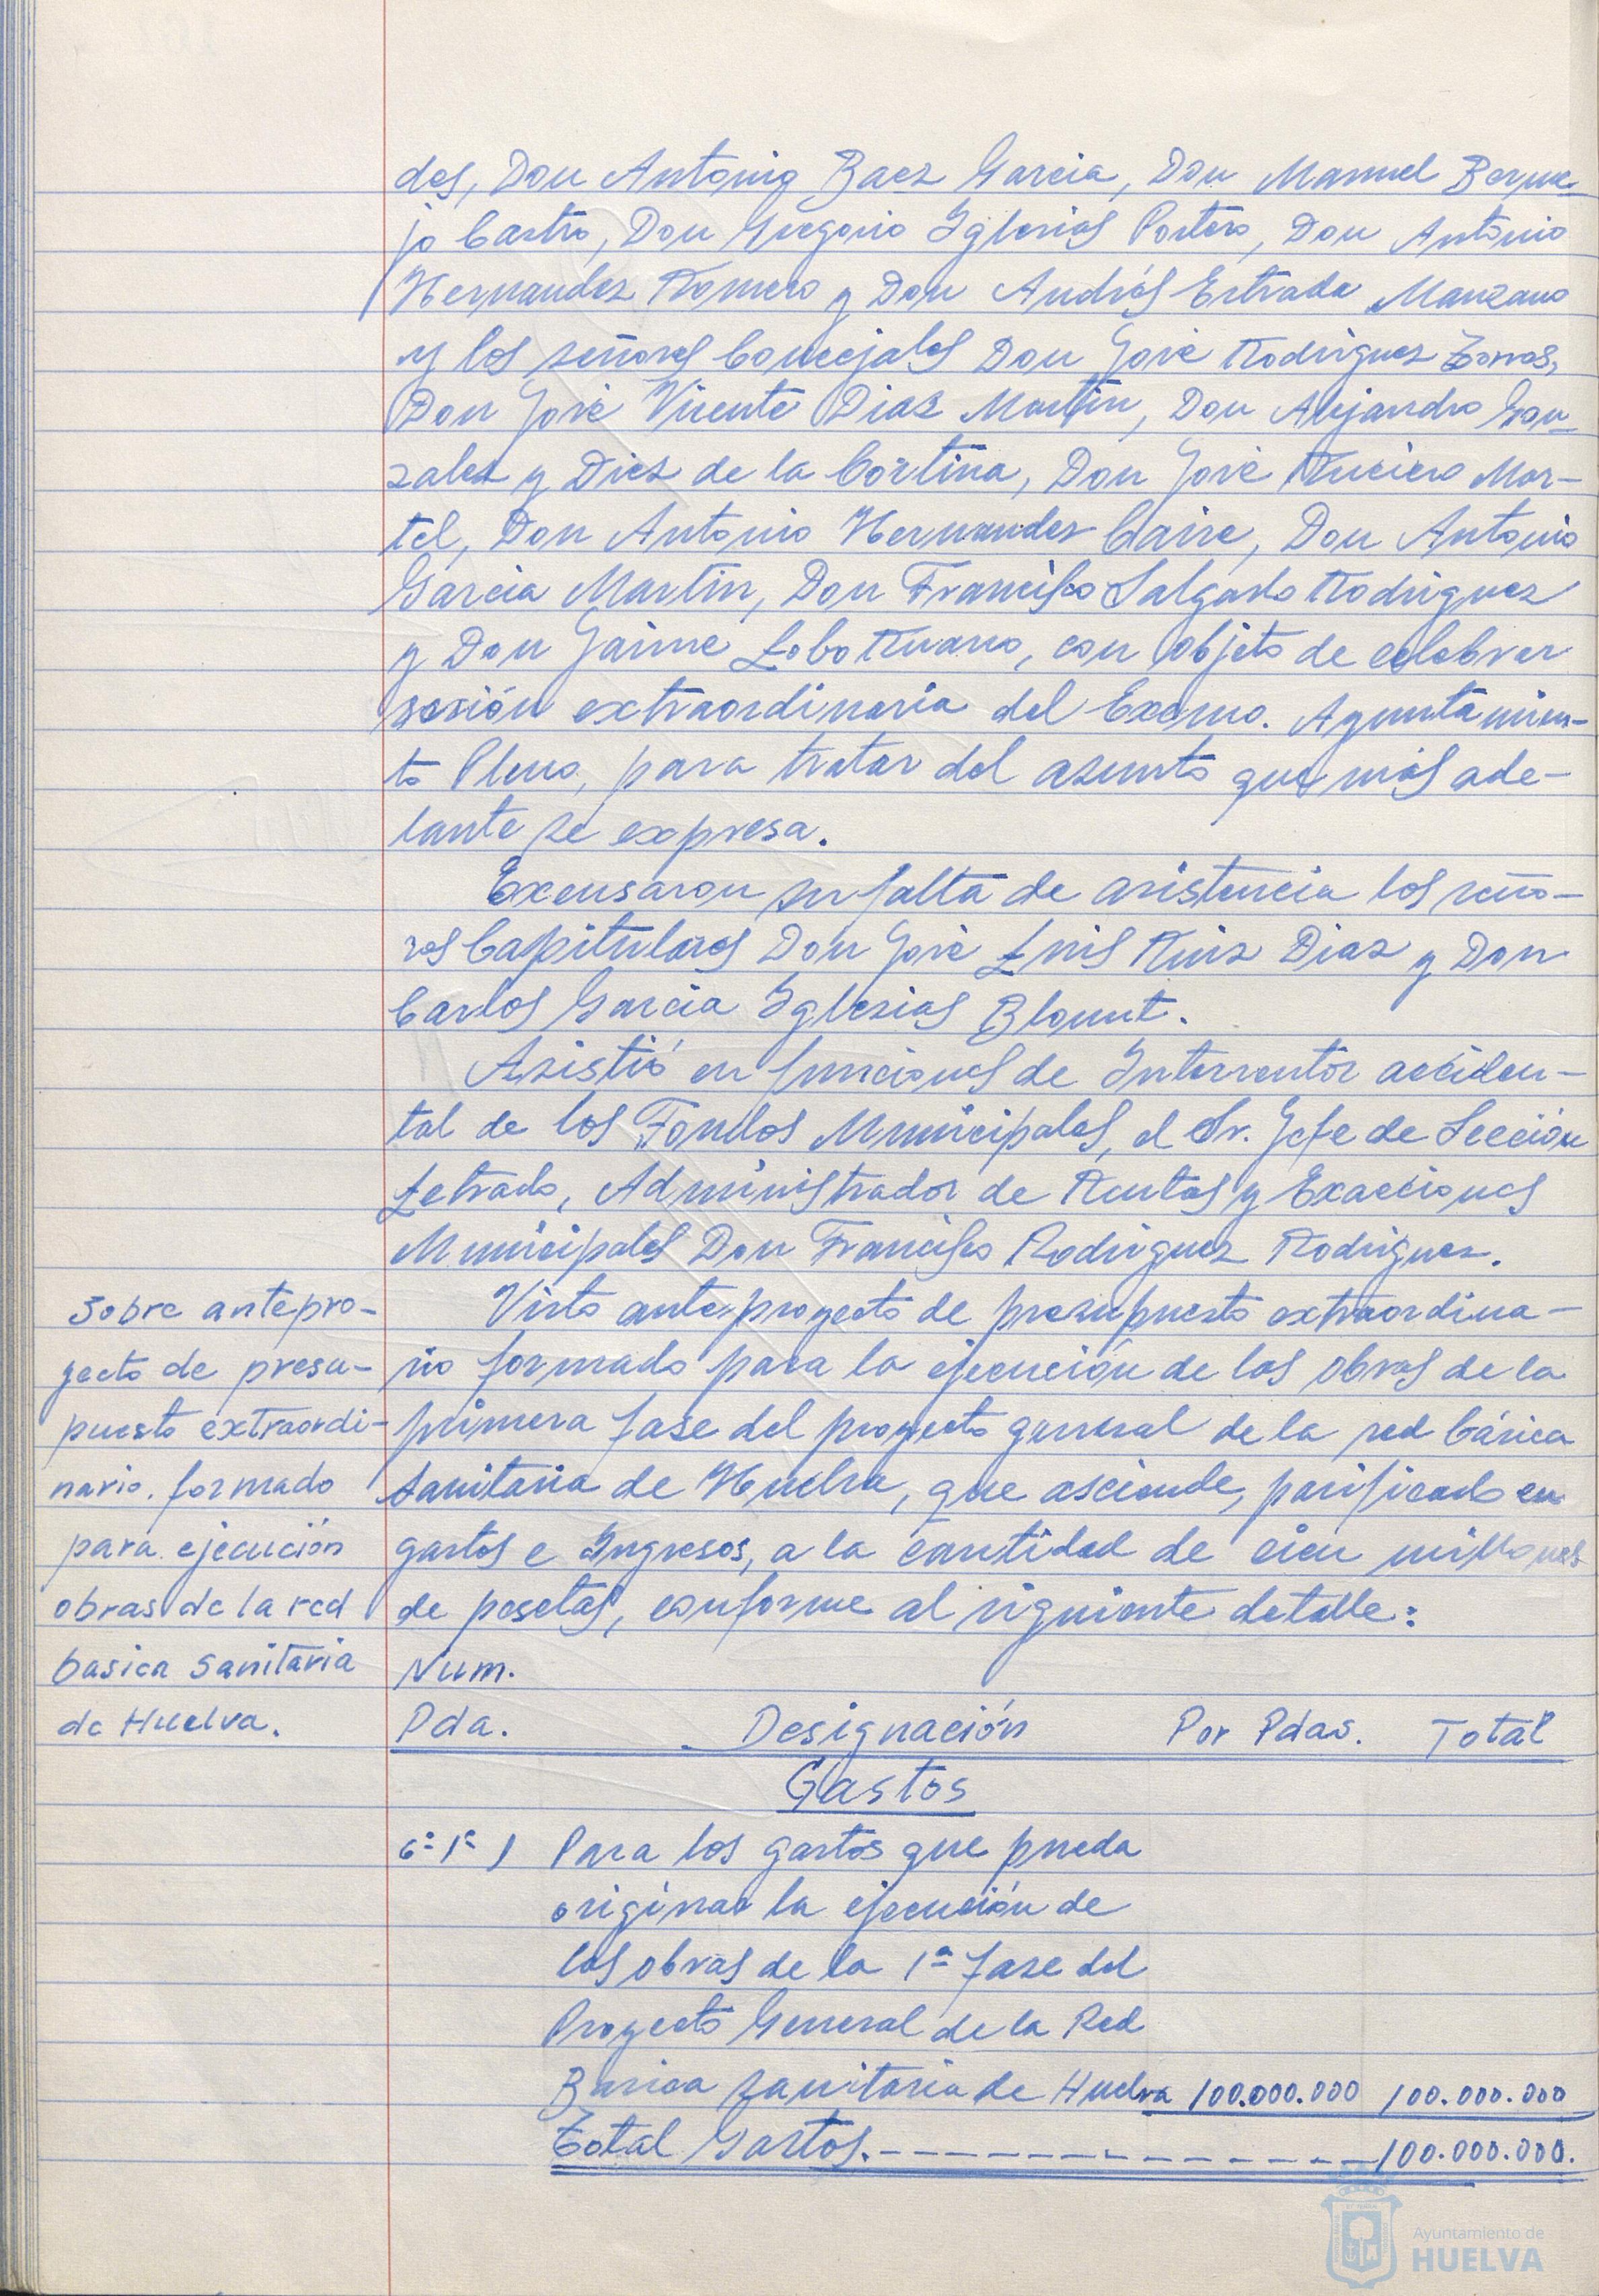 dos, Don Antonio Baez Garcia, Don Manuel Berme-
jo Castro, Don Gregorio Iglesias Portero, Don Antonio
Hernandez Romero y Don Andrés Estrada Manzano
y los señores Concejales Don José Rodriguez Torres,
Don José Vicente Diaz Martin, Don Alejandro Gon-
zalez y Diez de la Cortina, Don José Mar-
tel, Don Antonio Hernandez Caire, Don Antonio
Garcia Martin, Don Francisco Salgado Rodriguez
y Don Jaime Lobo Ruano, con objeto de celebrar
sesión extraordinaria del Excmo. Ayuntamien-
to Pleno, para tratar del asunto que más ade-
lante se expresa.
Excusaron su falta de asistencia los seño-
res Capitulares Don José Luis Ruiz Diaz y Don
Carlos Garcia Iglesias Blount.
Asistió en funciones de Interventor acciden-
tal de los Fondos Municipales, el Sr. Jefe de Sección
Letrado, Administrador de Rentas y Exacciones
Municipales Don Francisco Rodriguez Rodriguez.
Sobre antepro-
yecto de presu-
puesto extraordi-
nario. formado
para ejecución
obras de la red
basica Sanitaria
de Huelva.
Visto anteproyecto de presupuesto extraordina-
rio formado para la ejecución de las obras de la
primera fase del proyecto general de la red básica
Sanitaria de Huelva, que asciende, parificado en
gastos e Ingresos, a la cantidad de cien millones
de pesetas, conforme al siguiente detalle:
Num.
Pda. Designación Por Pdas. Total
Gastos
6º 1º 1 Para los gastos que pueda
originar la ejecución de
las obras de la 1ª fase del
Proyecto General de la Red
Basica Sanitaria de Huelva 100.000.000 100.000.000
Total Gastos.--------------100.000.000.
Ayuntamiento de
HUELVA